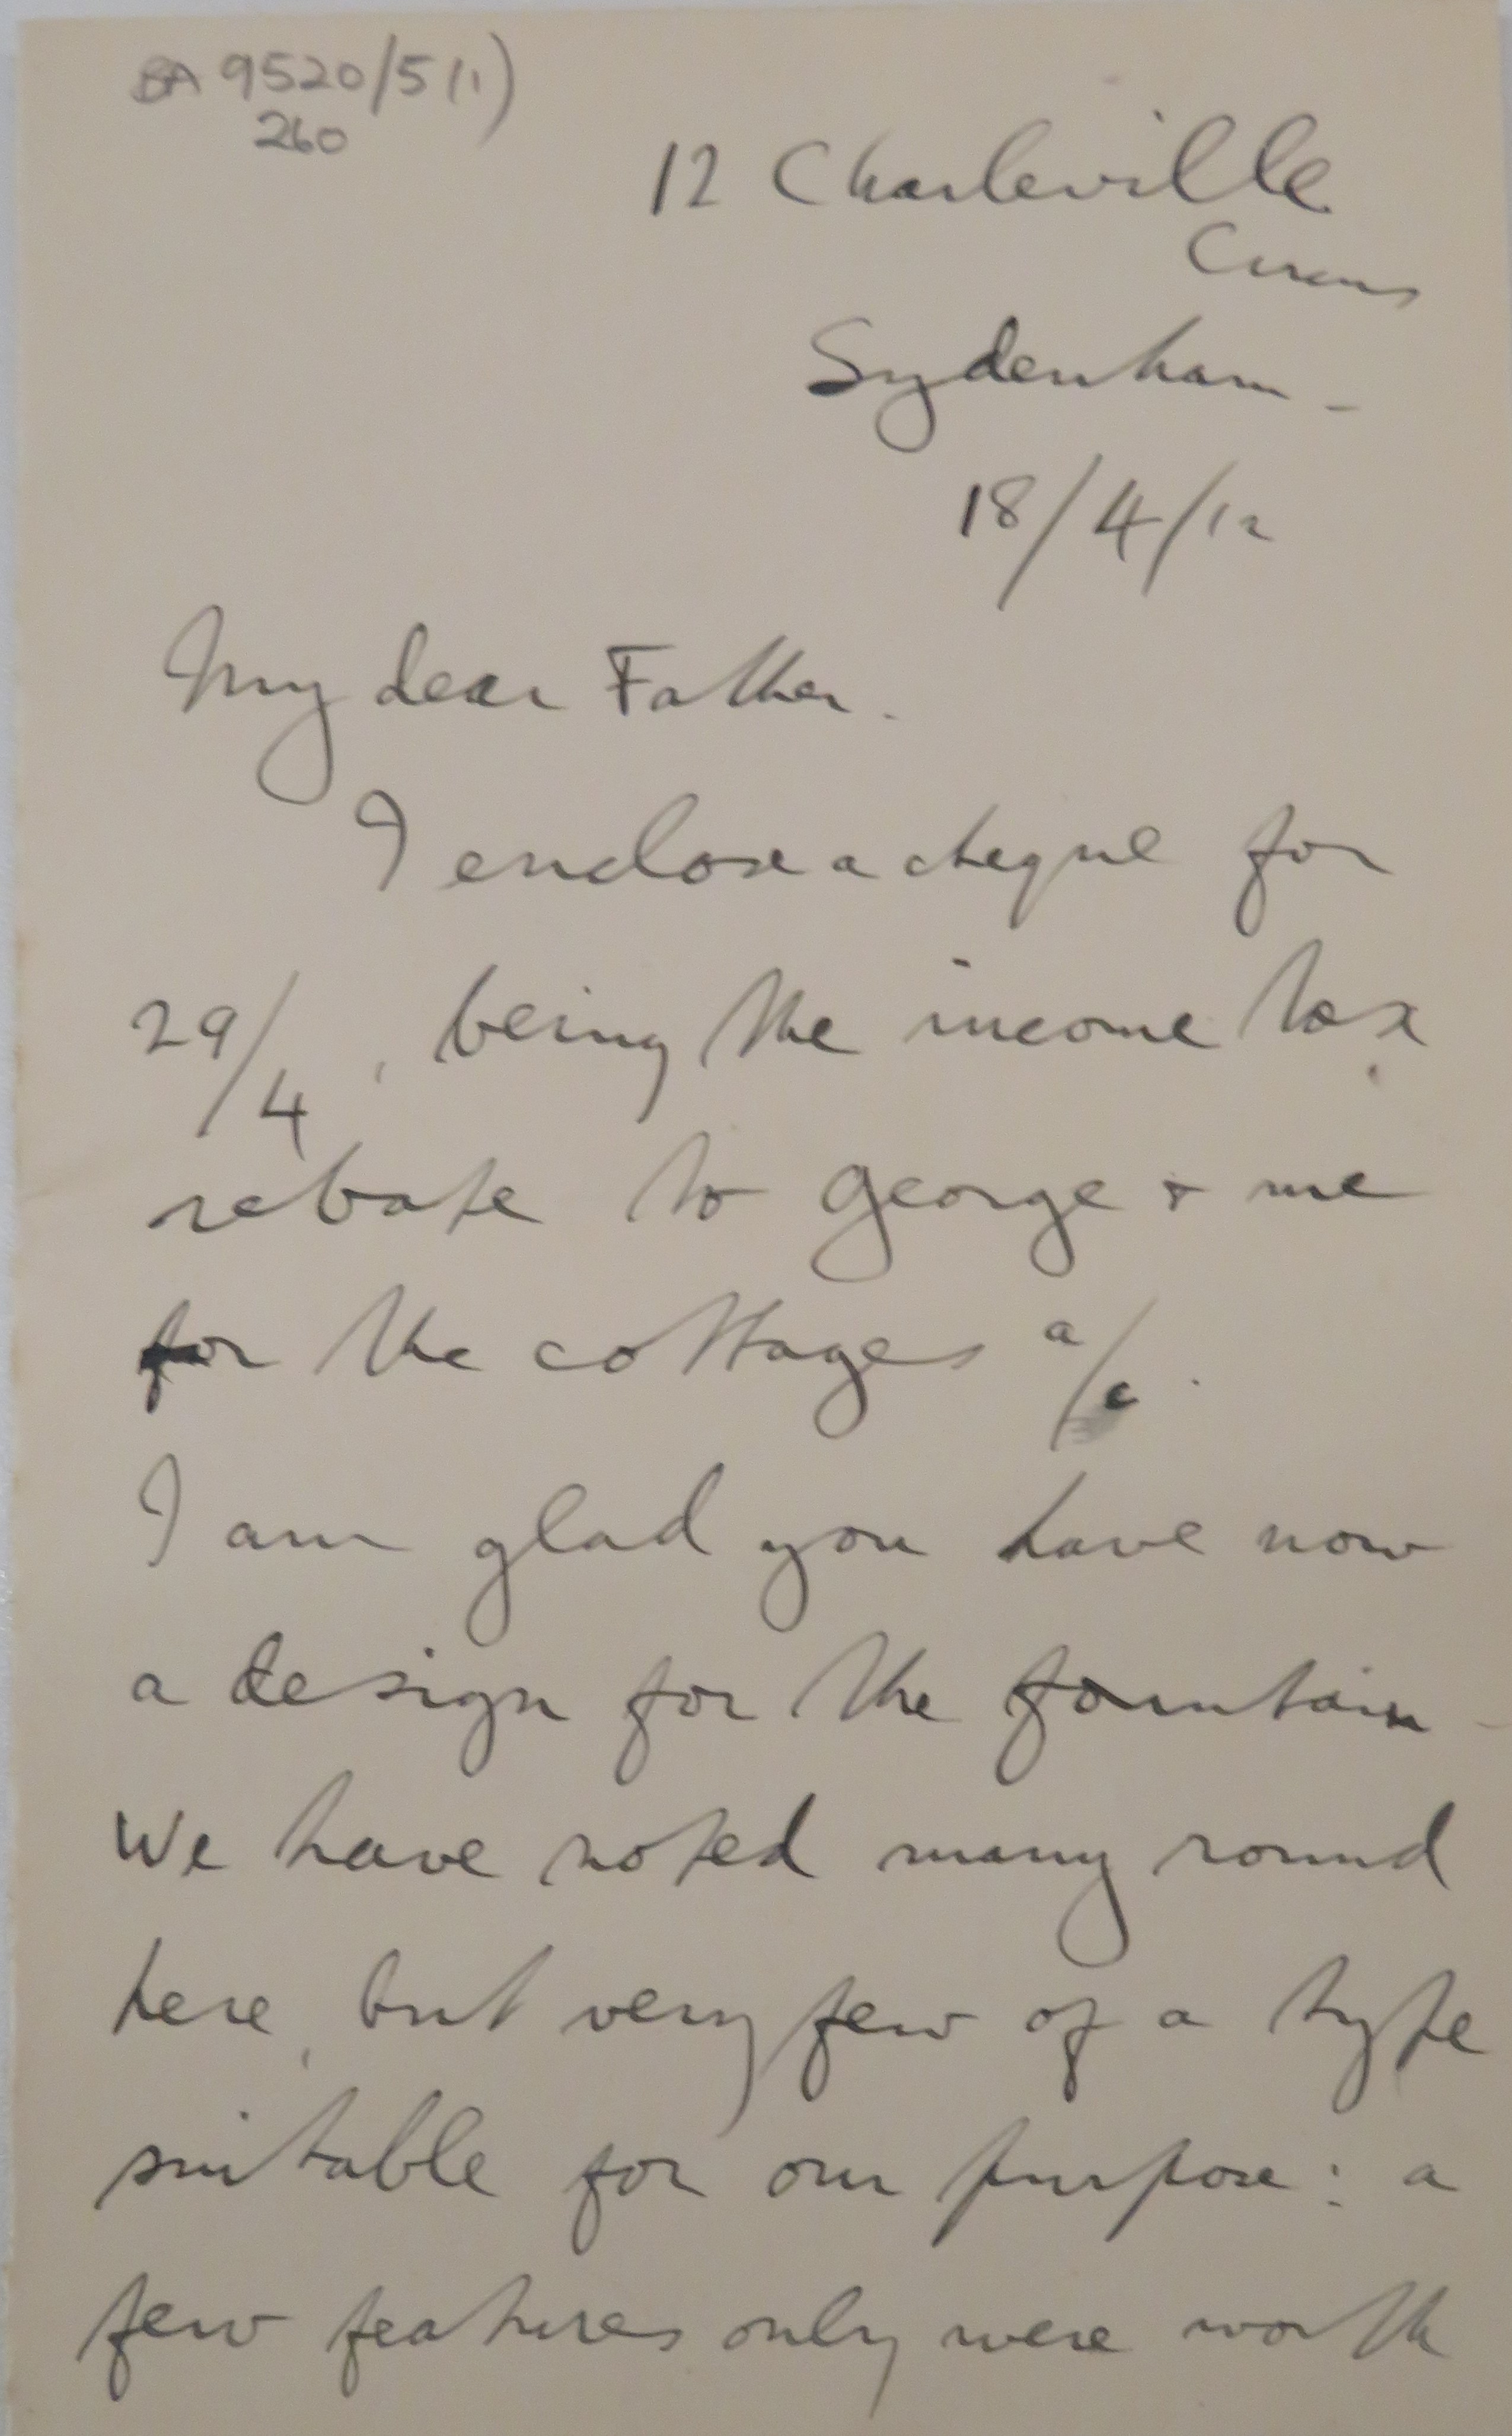 BA 9520/5(1)
260
12 Charleville
Circus
Sydenham -
18/4/12
My dear Father.
I enclose a cheque for
29/4, being the income tax
rebate to George + me
for the cottages a/c.
I am glad you have now
a design for the fountain -
We have noted many round
here, but very few of a type
suitable for our purpose: a
few features only were worth